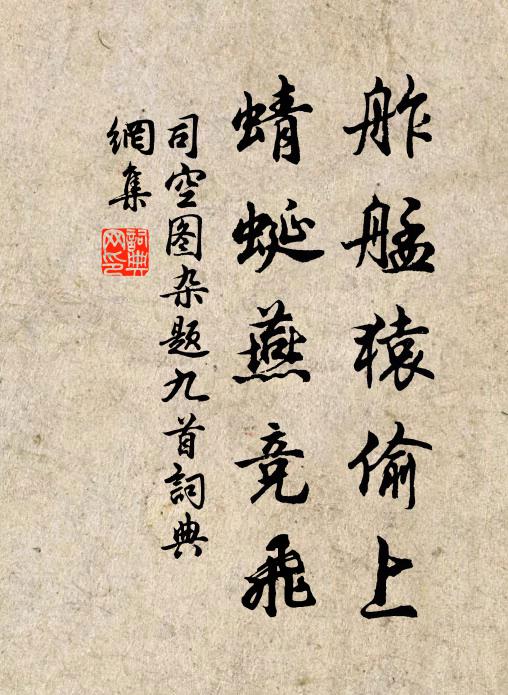 舴艋猿偷上
蜻蜓燕竞飛
司空图杂题九首詞典
網集
詞典
网印